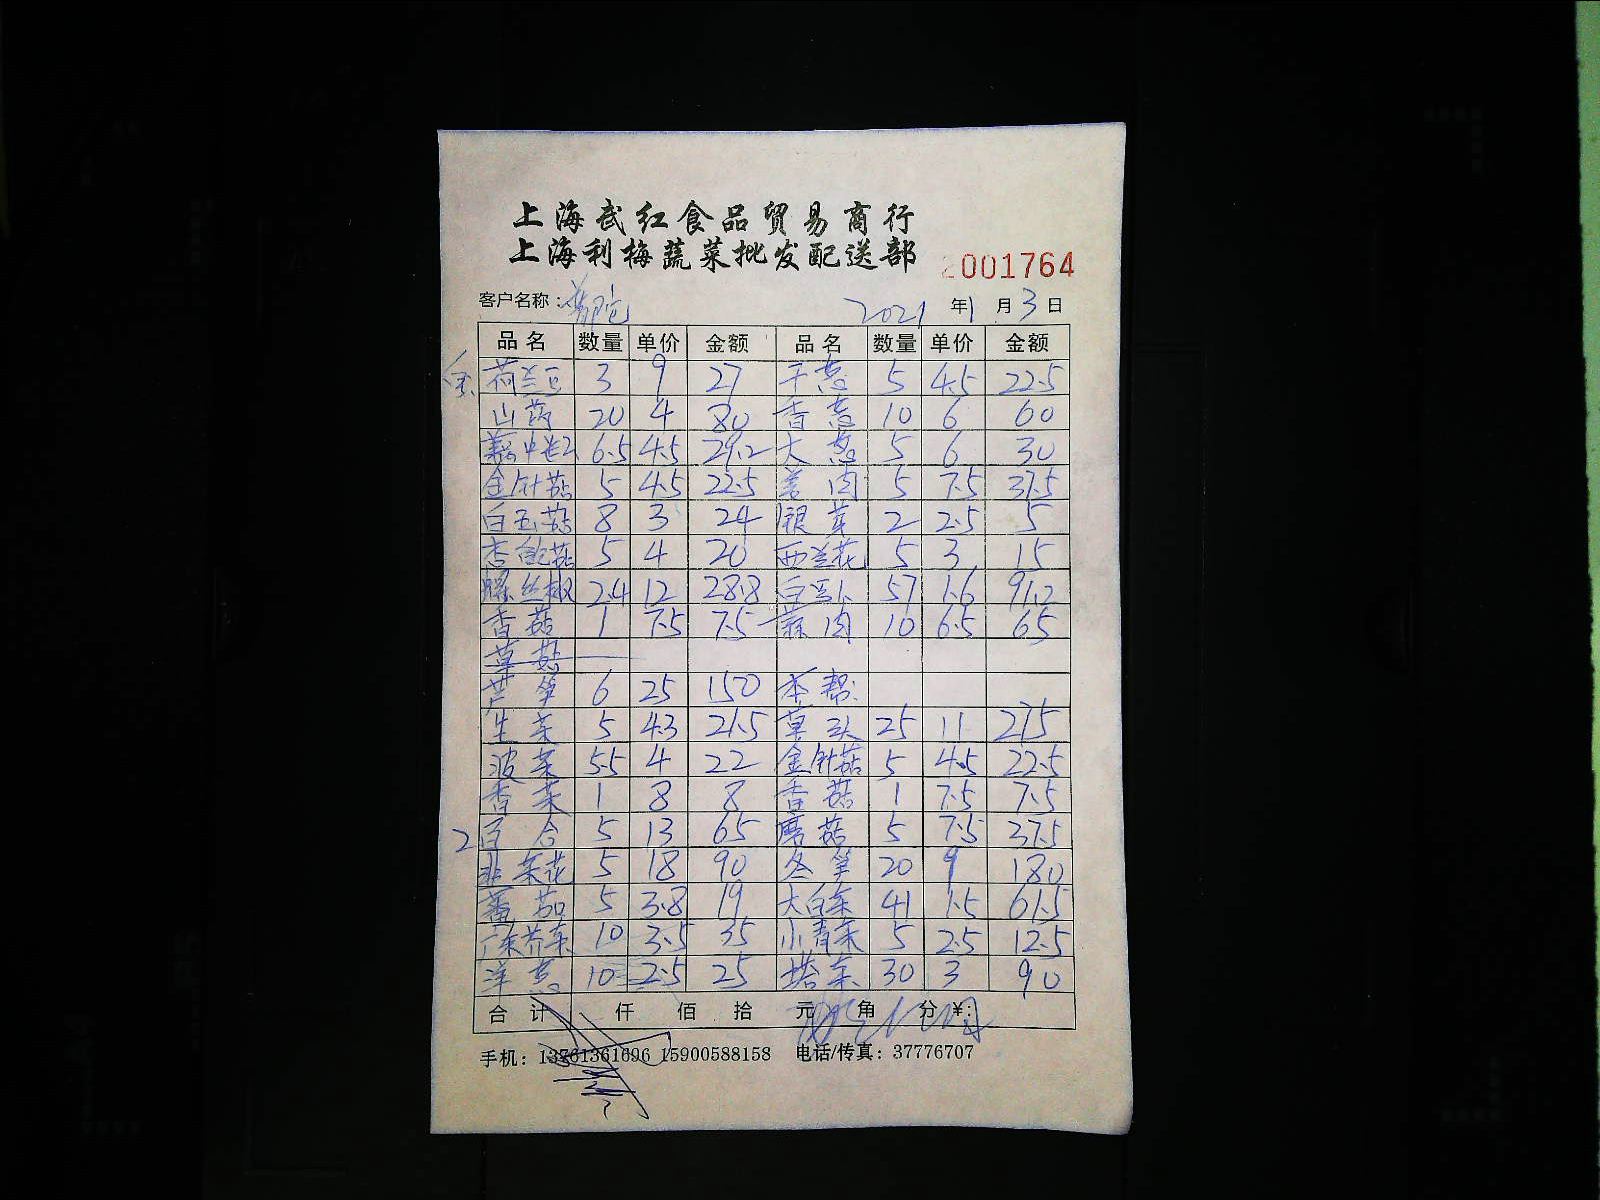 上海武红食品贸易商行
上海利梅蔬菜批发配送部 2001764
客户名称: 普陀 2021年1月3日
品名 数量 单价 金额 品名 数量 单价 金额
荷兰豆 3 9 27 干葱 5 4.5 22.5
山药 20 4 80 香葱 10 6 60
6.5 4.5 29.2 大葱 5 6 30
金针菇 5 4.5 22.5 姜肉 5 7.5 37.5
白玉菇 8 3 24 银芽 2 2.5 5
杏鲍菇 5 4 20 西兰花 5 3 15
螺丝椒 2.4 12 28.8 57 1.6 91.2
香菇 1 7.5 7.5 蒜肉 10 6.5 65
草菇
芦笋 6 25 150 本帮:
生菜 5 4.3 21.5 草头 25 11 275
波菜 5.5 4 22 金针菇 5 4.5 22.5
香菜 1 8 8 香菇 1 7.5 7.5
2 百合 5 13 65 磨菇 5 7.5 37.5
韭菜花 5 18 90 冬笋 20 9 180
蕃茄 5 3.8 19 大白菜 41 1.5 61.5
广东芥菜 10 3.5 35 小青菜 5 2.5 12.5
洋葱 10 2.5 25 塔菜 30 3 90
合计 仟 佰 拾 元 角 分 ¥:
手机: 13761361696 15900588158 电话/传真: 37776707